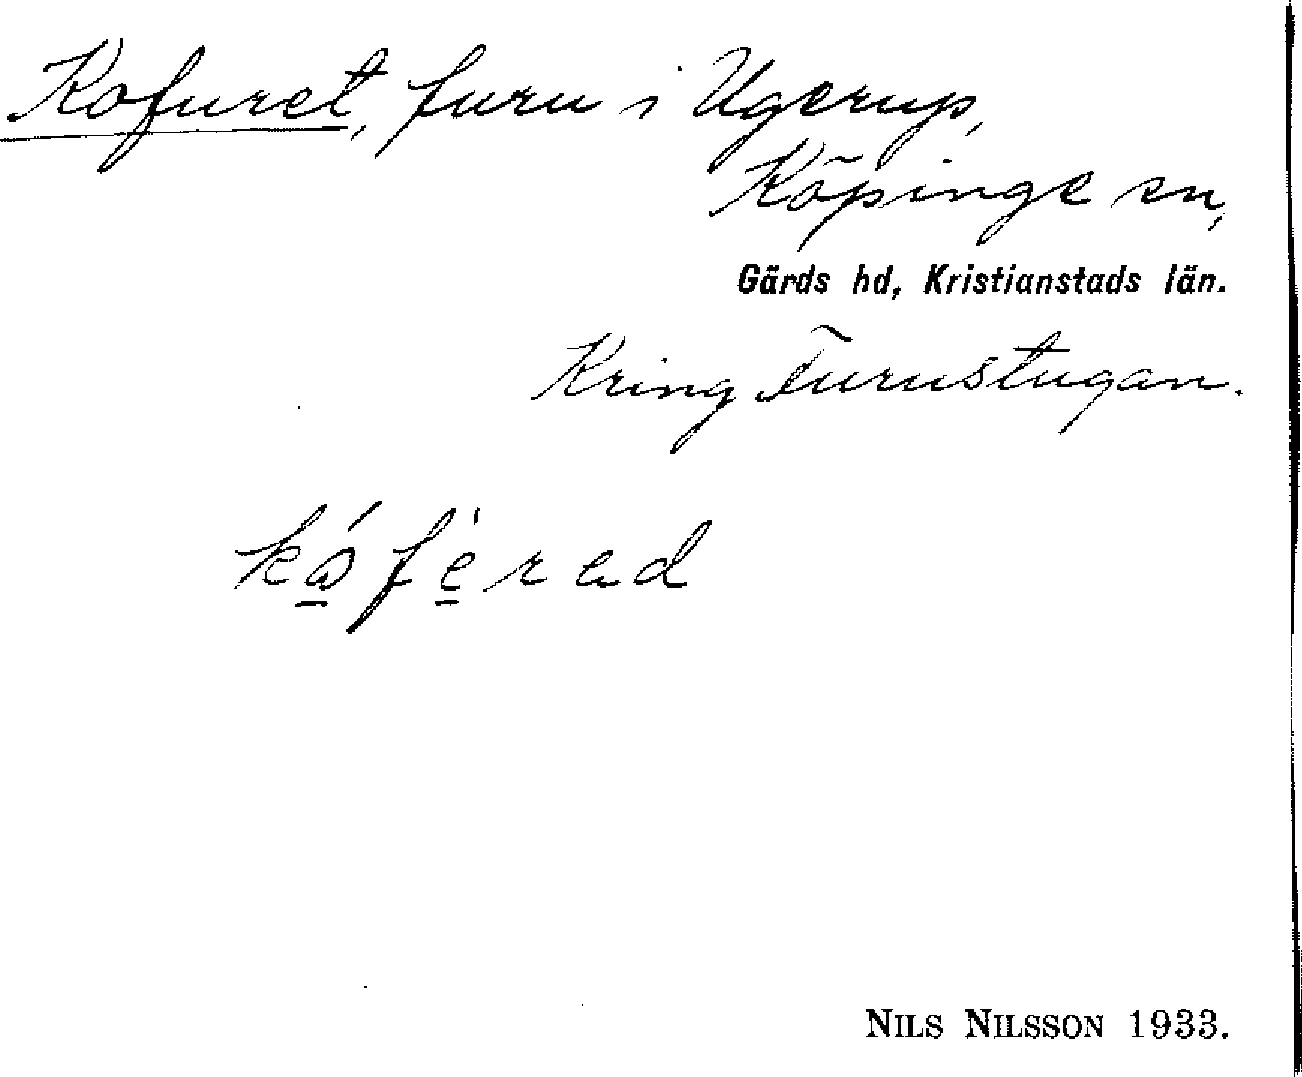 Kofuret, furu i Ugerup,
Köpinge sn,
Gärds hd, Kristianstads län.
Kring Furustugan.
NILS NILSSON 1933.